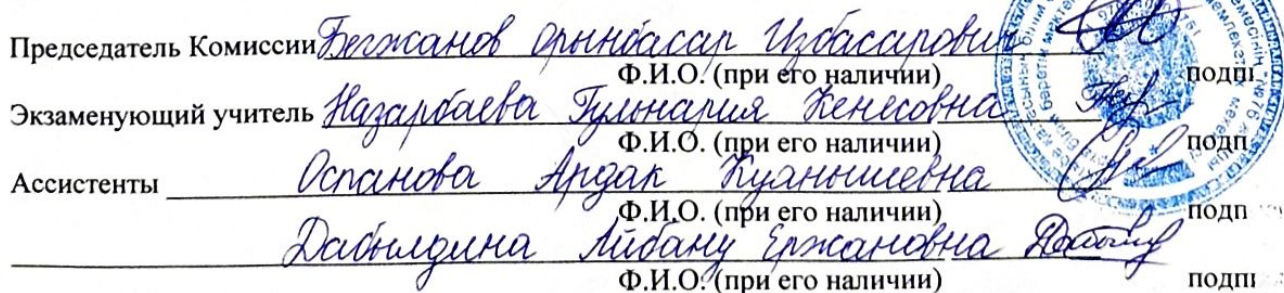 Председатель Комиссии Бегжанов Орынбасар Избасарович
Ф.И.О. (при его наличии) подпи
Экзаменующий учитель Назарбаева Гульнария Кенесовна
Ф.И.О. (при его наличии) подп
Ассистенты Оспанова Ардак Куанышевна
Ф.И.О. (при его наличии) подп
Дабылдина Айбану Ержановна
Ф.И.О. (при его наличии) подпи